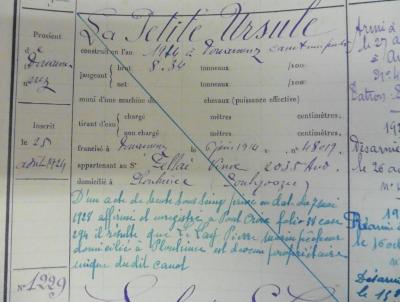 La Petite Ursule
Provient
de
Douarnenez
construit en l'an 1924 à Douarnenez canot non ponté
jaugeant
brut 8.34 tonneaux /100e
net tonneaux /100e
muni d'une machine de chevaux (puissance effective)
tirant d'eau
chargé mètres centimètres,
non chargé mètres centimètres.
francisé à Douarnenez le 6 juin 1924 n° 48017
appartenant au Sr Veuve 2035 And
domicilié à Plouhinec (Poulgoazec)
Inscrit
le 25
avril 1924
D'un acte de vente sous seing privé en date du 7 mai
1928 affirmé et enregistré à Pont Croix folio 38 case
294 il résulte que Le Lay Pierre marin pêcheur
domicilié à Plouhinec est devenu propriétaire
unique dudit canot
N° 1229
Armé à
le 27
Patron
Désarmé
le 26
Réarmé
le 16 oc
Désarmé
le 15